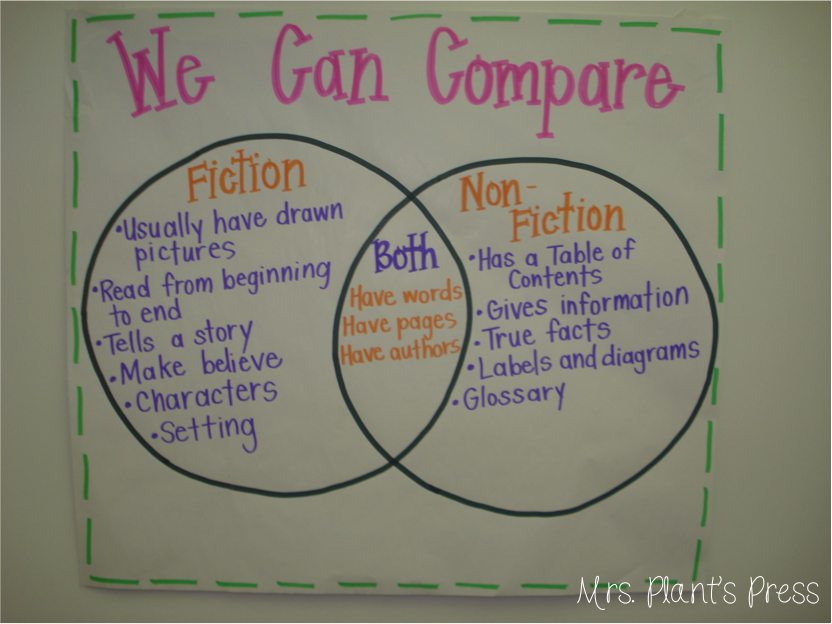 We Can Compare
Fiction
•Usually have drawn
pictures
•Read from beginning
to end
•Tells a story
•Make believe
•Characters
•Setting
Both
Have words
Have pages
Have authors
Non-
Fiction
•Has a Table of
Contents
•Gives information
•True facts
•Labels and diagrams
•Glossary
Mrs. Plant's Press